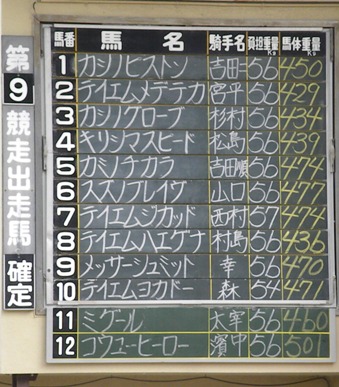 第9競走出走馬確定
馬番 馬名 騎手名 負担重量Kg 馬体重量Kg
1 カシノピストン 吉田一 56 450
2 テイエムメデテカ 宮平 56 429
3 カシノグローブ 杉村 56 434
4 キリシマスピード 松島 56 439
5 ガミノチカラ 吉田順 56 474
6 スズノブレイヴ 山口 56 477
7 テイエムジカッド 西村 57 474
8 テイエムハエゲナ 村島 56 436
9 メッサーシュミット 幸 56 470
10 テイエムヨカドー 森 54 471
11 ミグール 太宰 56 460
12 コウユーヒーロー 濱中 56 501